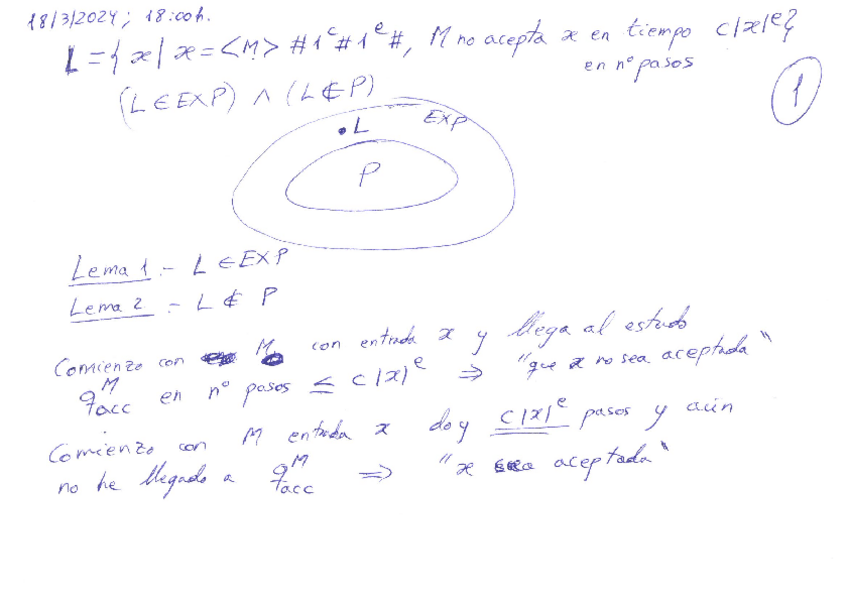 18/3/2024; 18:00h.
L = { x | x = <M> #1^c#1^e#, M no acepta x en tiempo c|x|^e}
en nº pasos
(L ∈ EXP) ∧ (L ∉ P)
1
• L EXP
P
Lema 1.- L ∈ EXP
Lema 2.- L ∉ P
Comienzo con M con entrada x y llega al estado
q_acc^M en nº pasos ≤ c|x|^e ⇒ "que x no sea aceptada"
Comienzo con M entrada x doy c|x|^e pasos y aún
no he llegado a q_acc^M ⇒ "x sea aceptada"